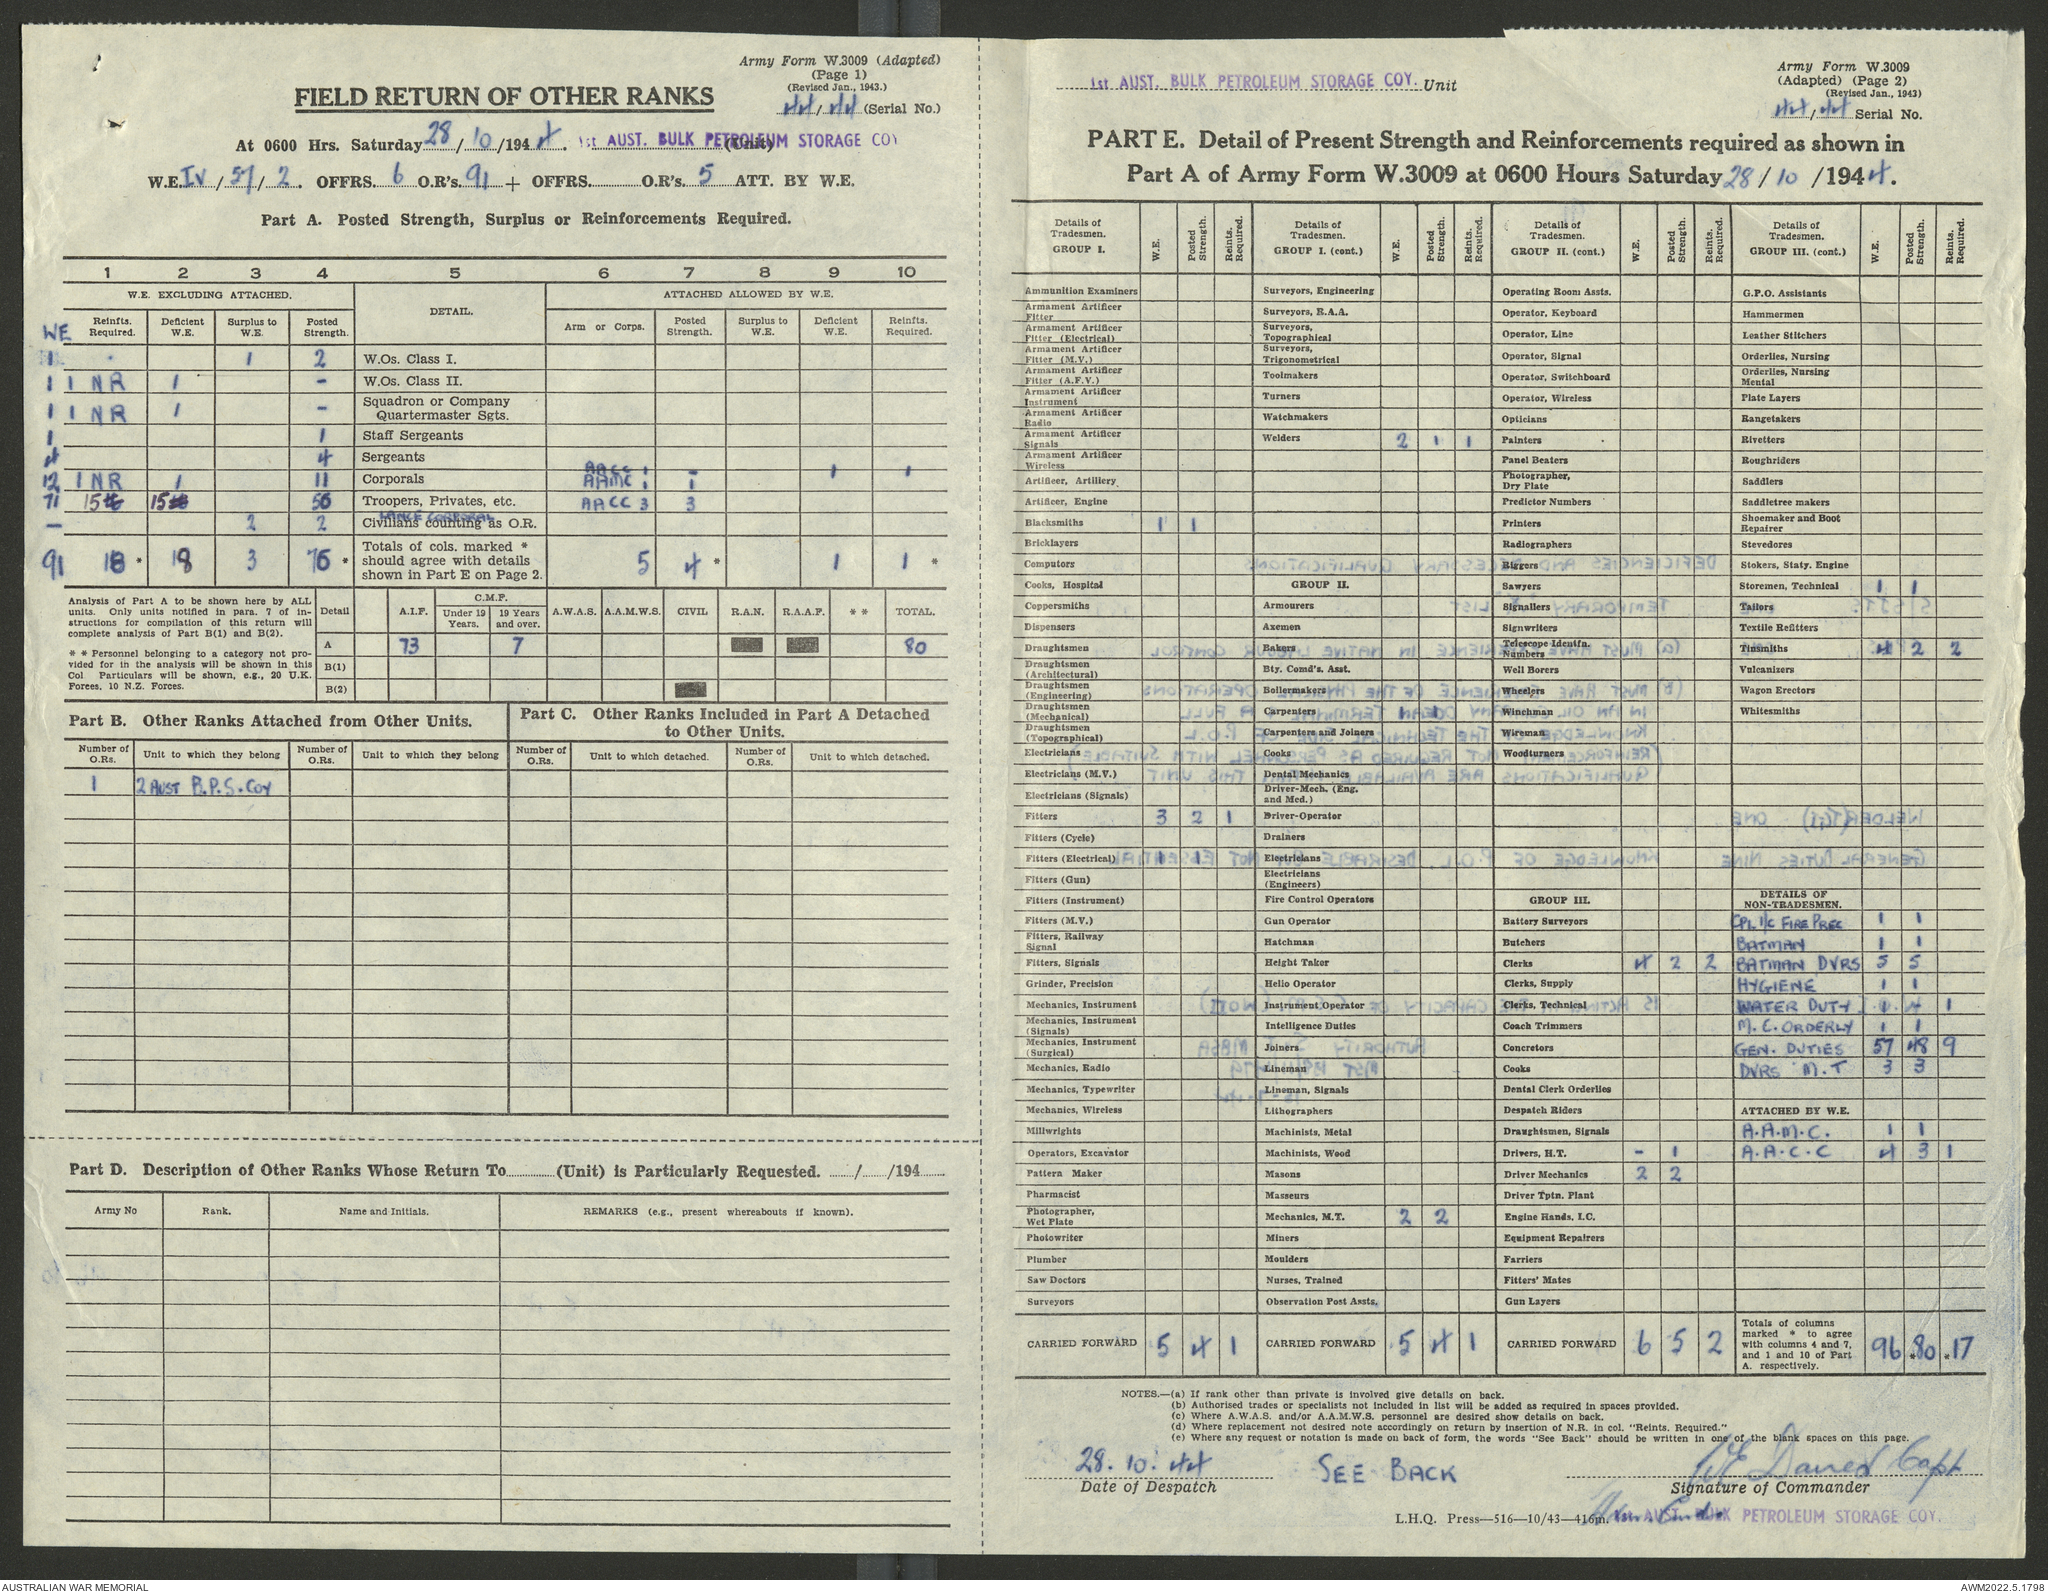 Army Form W.3009 (Adapted)
(Page 1)
(Revised Jan., 1943.)
44/44 (Serial No.)
FIELD RETURN OF OTHER RANKS
At 0600 Hrs. Saturday 28/10/1944. 1st AUST. BULK PETROLEUM STORAGE COY (Unit)
W.E. IV/57/2. OFFRS. 6 O.R's. 91 + OFFRS. O.R's. 5 ATT. BY W.E.
Part A. Posted Strength, Surplus or Reinforcements Required.
1 2 3 4 5 6 7 8 9 10
W.E. EXCLUDING ATTACHED. DETAIL. ATTACHED ALLOWED BY W.E.
WE Reinfts. Required. Deficient W.E. Surplus to W.E. Posted Strength. Arm or Corps. Posted Strength. Surplus to W.E. Deficient W.E. Reinfts. Required.
1 1 2 W.Os. Class I.
1 1 NR 1 - W.Os. Class II.
1 1 NR 1 - Squadron or Company Quartermaster Sgts.
1 1 Staff Sergeants
4 4 Sergeants
AACC 1 - 1 1
12 1 NR 1 11 Corporals AAMC 1 1
71 15 15 56 Troopers, Privates, etc. AACC 3 3
LANCE CORPORAL
- 2 2 Civilians counting as O.R.
91 18 * 18 3 76 * Totals of cols. marked * should agree with details shown in Part E on Page 2. 5 4 * 1 1 *
Analysis of Part A to be shown here by ALL units. Only units notified in para. 7 of instructions for compilation of this return will complete analysis of Part B(1) and B(2).
* * Personnel belonging to a category not provided for in the analysis will be shown in this Col Particulars will be shown, e.g., 20 U.K. Forces, 10 N.Z. Forces.
Detail A.I.F. C.M.F. Under 19 Years. 19 Years and over. A.W.A.S. A.A.M.W.S. CIVIL R.A.N. R.A.A.F. * * TOTAL.
A 73 7 80
B(1)
B(2)
Part B. Other Ranks Attached from Other Units.
Part C. Other Ranks Included in Part A Detached to Other Units.
Number of O.Rs. Unit to which they belong Number of O.Rs. Unit to which they belong Number of O.Rs. Unit to which detached. Number of O.Rs. Unit to which detached.
1 2 AUST B.P.S. COY
Part D. Description of Other Ranks Whose Return To (Unit) is Particularly Requested. / /194
Army No Rank. Name and Initials. REMARKS (e.g., present whereabouts if known).
1st AUST. BULK PETROLEUM STORAGE COY. Unit
Army Form W.3009
(Adapted) (Page 2)
(Revised Jan., 1943)
44/44 Serial No.
PART E. Detail of Present Strength and Reinforcements required as shown in
Part A of Army Form W.3009 at 0600 Hours Saturday 28/10/1944.
Details of Tradesmen. GROUP I. W.E. Posted Strength. Reints. Required.
Ammunition Examiners
Armament Artificer Fitter
Armament Artificer Fitter (Electrical)
Armament Artificer Fitter (M.V.)
Armament Artificer Fitter (A.F.V.)
Armament Artificer Instrument
Armament Artificer Radio
Armament Artificer Signals
Armament Artificer Wireless
Artificer, Artillery
Artificer, Engine
Blacksmiths 1 1
Bricklayers
Computors
Cooks, Hospital
Coppersmiths
Dispensers
Draughtsmen
Draughtsmen (Architectural)
Draughtsmen (Engineering)
Draughtsmen (Mechanical)
Draughtsmen (Topographical)
Electricians
Electricians (M.V.)
Electricians (Signals)
Fitters 3 2 1
Fitters (Cycle)
Fitters (Electrical) 1 1
Fitters (Gun)
Fitters (Instrument)
Fitters (M.V.)
Fitters, Railway Signal
Fitters, Signals
Grinder, Precision
Mechanics, Instrument
Mechanics, Instrument (Signals)
Mechanics, Instrument (Surgical)
Mechanics, Radio
Mechanics, Typewriter
Mechanics, Wireless
Millwrights
Operators, Excavator
Pattern Maker
Pharmacist
Photographer, Wet Plate
Photowriter
Plumber
Saw Doctors
Surveyors
CARRIED FORWARD 5 4 1
Details of Tradesmen. GROUP I. (cont.) W.E. Posted Strength. Reints. Required.
Surveyors, Engineering
Surveyors, R.A.A.
Surveyors, Topographical
Surveyors, Trigonometrical
Toolmakers
Turners
Watchmakers
Welders 2 1 1
GROUP II.
Armourers
Axemen
Bakers
Bty. Comd's. Asst.
Boilermakers
Carpenters 1 1
Carpenters and Joiners
Cooks
Dental Mechanics
Driver-Mech. (Eng. and Med.)
Driver-Operator
Drainers
Electricians
Electricians (Engineers)
Fire Control Operators
Gun Operator
Hatchman
Height Taker
Helio Operator
Instrument Operator
Intelligence Duties
Joiners
Lineman
Lineman, Signals
Lithographers
Machinists, Metal
Machinists, Wood
Masons
Masseurs
Mechanics, M.T. 2 2
Miners
Moulders
Nurses, Trained
Observation Post Assts.
CARRIED FORWARD 5 4 1
Details of Tradesmen. GROUP II. (cont.) W.E. Posted Strength. Reints. Required.
Operating Room Assts.
Operator, Keyboard
Operator, Line
Operator, Signal
Operator, Switchboard
Operator, Wireless
Opticians
Painters
Panel Beaters
Photographer, Dry Plate
Predictor Numbers
Printers
Radiographers
Riggers
Sawyers
Signallers
Signwriters
Telescope Identifn. Numbers
Well Borers
Wheelers
Winchman
Wireman
Woodturners
GROUP III.
Battery Surveyors
Butchers
Clerks 4 2 2
Clerks, Supply
Clerks, Technical
Coach Trimmers
Concretors
Cooks
Dental Clerk Orderlies
Despatch Riders
Draughtsmen, Signals
Drivers, H.T. - 1
Driver Mechanics 2 2
Driver Tptn. Plant
Engine Hands, I.C.
Equipment Repairers
Farriers
Fitters' Mates
Gun Layers
CARRIED FORWARD 6 5 2
Details of Tradesmen. GROUP III. (cont.) W.E. Posted Strength. Reints. Required.
G.P.O. Assistants
Hammermen
Leather Stitchers
Orderlies, Nursing
Orderlies, Nursing Mental
Plate Layers
Rangetakers
Rivetters
Roughriders
Saddlers
Saddletree makers
Shoemaker and Boot Repairer
Stevedores
Stokers, Staty. Engine
Storemen, Technical 1 1
Tailors
Textile Refitters
Tinsmiths 4 2 2
Vulcanizers
Wagon Erectors
Whitesmiths
DETAILS OF NON-TRADESMEN.
CPL I/C FIRE PREC 1 1
BATMAN 1 1
BATMAN DVRS 5 5
HYGIENE 1 1
WATER DUTY 1 - 1
M.C. ORDERLY 1 1
GEN. DUTIES 57 48 9
DVRS M.T 3 3
ATTACHED BY W.E.
A.A.M.C. 1 1
A.A.C.C 4 3 1
Totals of columns marked * to agree with columns 4 and 7, and 1 and 10 of Part A. respectively. 96 *80 *17
NOTES.—(a) If rank other than private is involved give details on back.
(b) Authorised trades or specialists not included in list will be added as required in spaces provided.
(c) Where A.W.A.S. and/or A.A.M.W.S. personnel are desired show details on back.
(d) Where replacement not desired note accordingly on return by insertion of N.R. in col. "Reints. Required."
(e) Where any request or notation is made on back of form, the words "See Back" should be written in one of the blank spaces on this page.
28.10.44 SEE BACK Capt
Date of Despatch Signature of Commander
L.H.Q. Press—516—10/43—416m. AUST. BULK PETROLEUM STORAGE COY.
AUSTRALIAN WAR MEMORIAL
AWM2022.5.1798